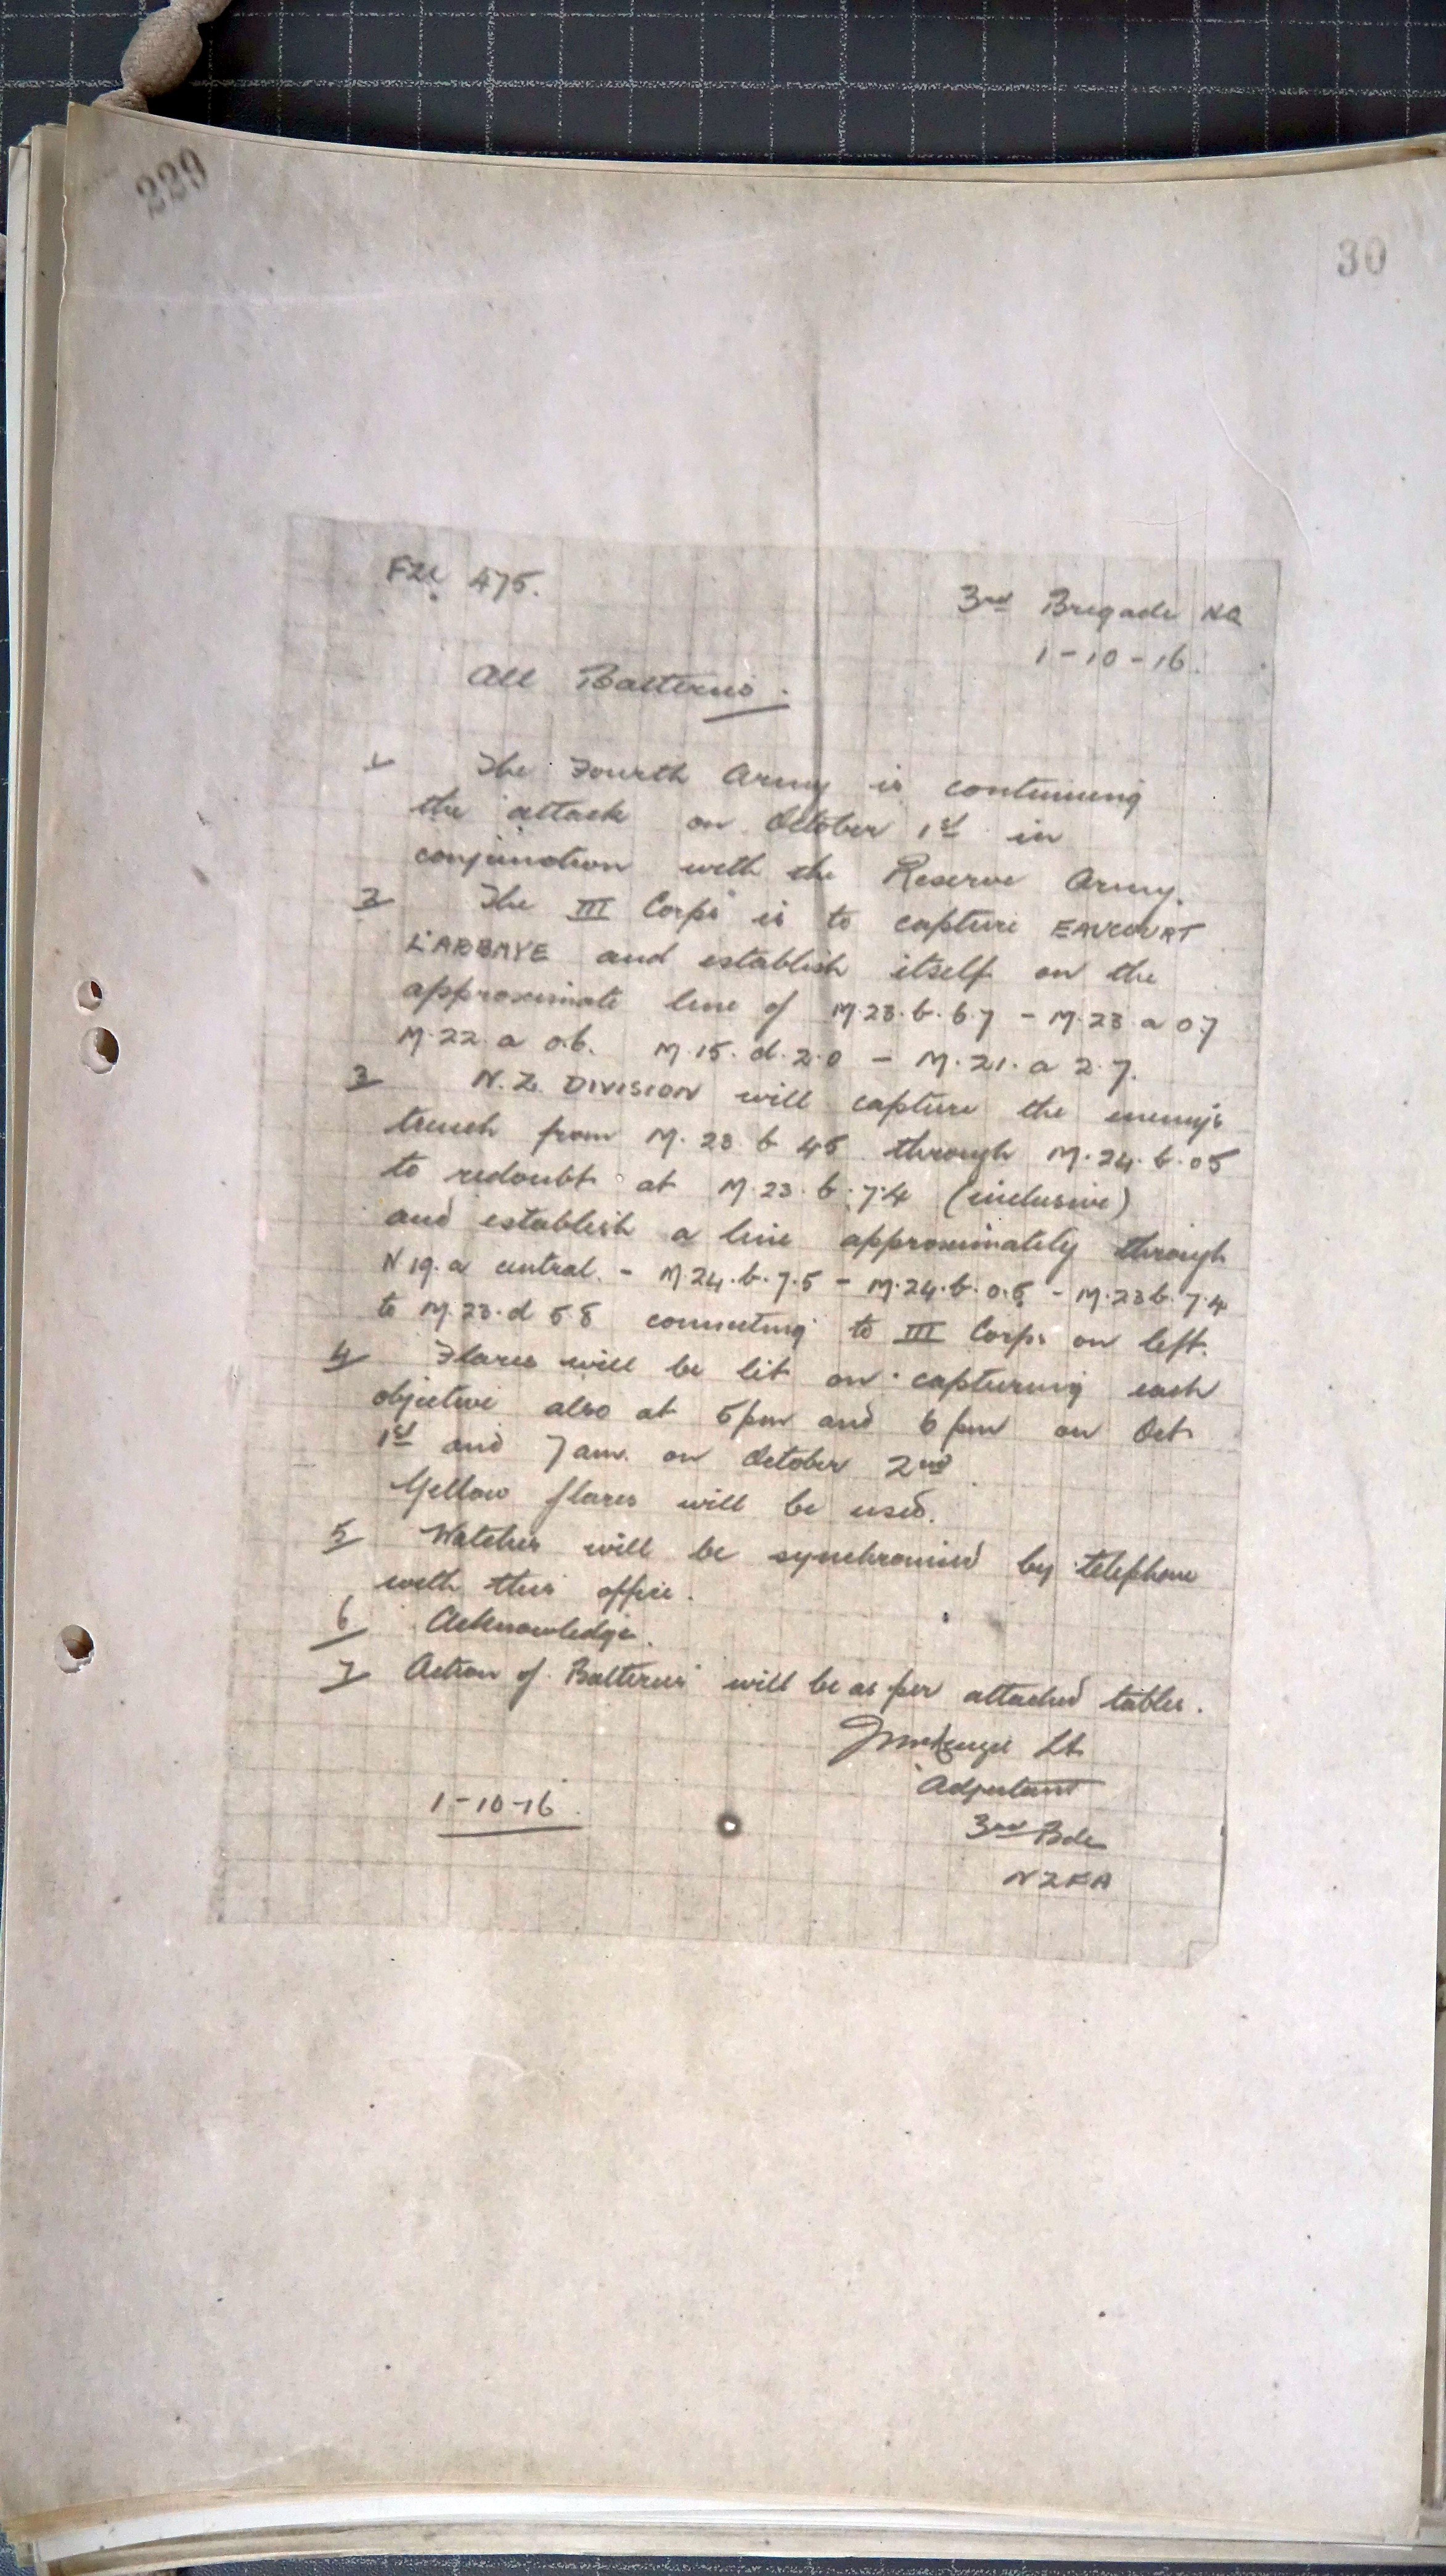 229
30
475.
3rd Brigade HQ
1-10-16.
All Batteries.
1 The Fourth Army is continuing
the attack on October 1st in
conjunction with the Reserve Army.
2 The III Corps is to capture EAUCOURT
L'ABBAYE and establish itself on the
approximate line of M.23.b.6.7 - M.23.a 0.7
M.22.a 0.6. M.15.d.2.0 - M.21.a 2.7.
3 N.Z. DIVISION will capture the enemy's
trench from M.23.b 45 through M.24.b.05
to redoubt at M.23.b.7.4 (inclusive)
and establish a line approximately through
N 19.a central. - M.24.b.7.5 - M.24.b.0.5 - M.23b.7.4
to M.23.d 5.8 connecting to III Corps on left.
4 Flares will be lit on capturing each
objective also at 5pm and 6pm on Oct
1st and 7am. on October 2nd
Yellow flares will be used.
5 Watches will be synchronised by telephone
with this office.
6 Acknowledge.
7 Action of Batteries will be as per attached tables.
Lt
Adjutant
1-10-16.
3rd Bde
NZFA